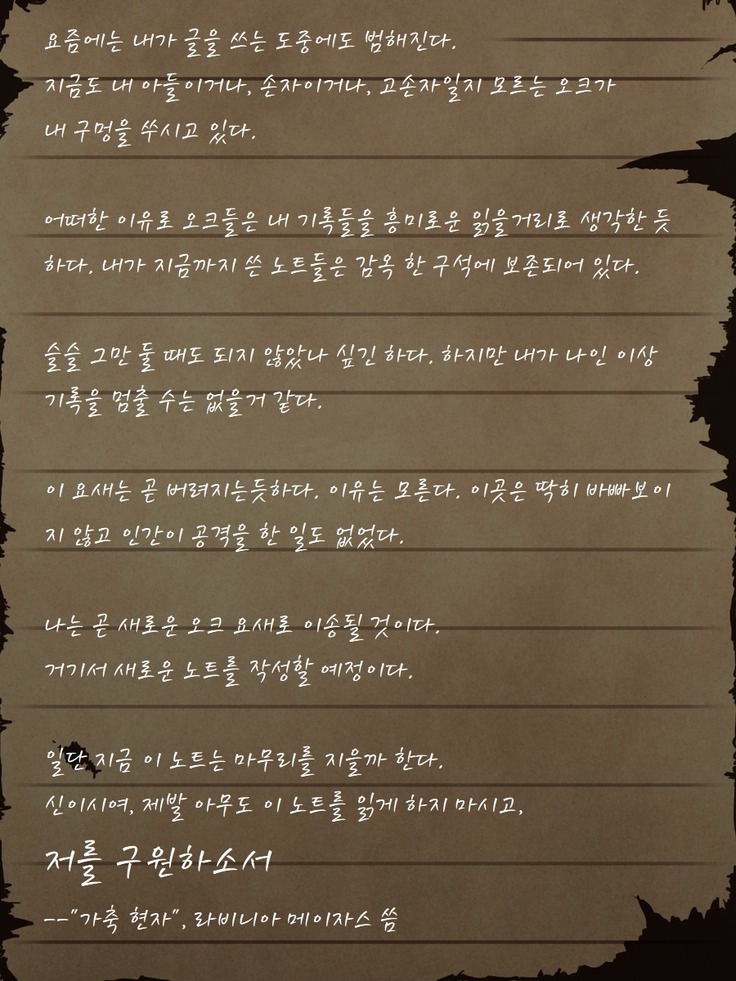 요즘에는 내가 글을 쓰는 도중에도 범해진다.
지금도 내 아들이거나, 손자이거나, 고손자일지 모르는 오크가
내 구멍을 쑤시고 있다.
어떠한 이유로 오크들은 내 기록들을 흥미로운 읽을거리로 생각한 듯
하다. 내가 지금까지 쓴 노트들은 감옥 한 구석에 보존되어 있다.
슬슬 그만 둘 때도 되지 않았나 싶긴 하다. 하지만 내가 나인 이상
기록을 멈출 수는 없을거 같다.
이 요새는 곧 버려지는듯하다. 이유는 모른다. 이곳은 딱히 바빠보이
지 않고 인간이 공격을 한 일도 없었다.
나는 곧 새로운 오크 요새로 이송될 것이다.
거기서 새로운 노트를 작성할 예정이다.
일단 지금 이 노트는 마무리를 지을까 한다.
신이시여, 제발 아무도 이 노트를 읽게 하지 마시고,
저를 구원하소서
--"가축 현자", 라비니아 메이자스 씀